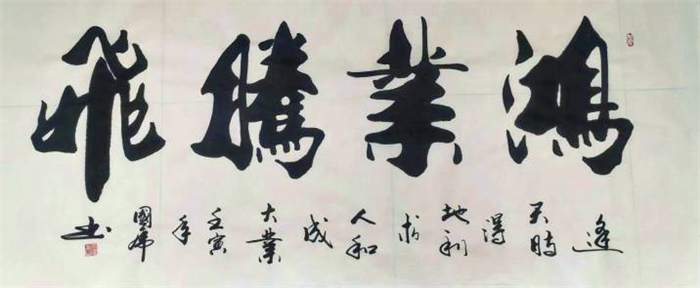 鴻業騰飛
逢天時得地利人和成大業壬寅年國書